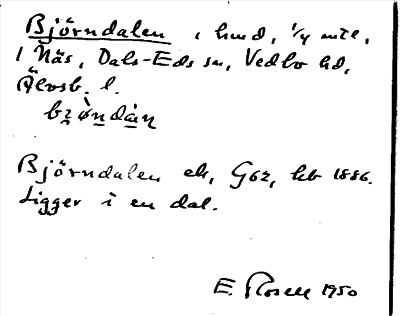 Björndalen, hmd, 1/4 mtl,
1 Näs, Dals-Eds sn, Vedbo hd,
Älvsb. l.
brǿndàn
Björndalen ek, G62, hb 1886.
Ligger i en dal.
E. Rosell 1950